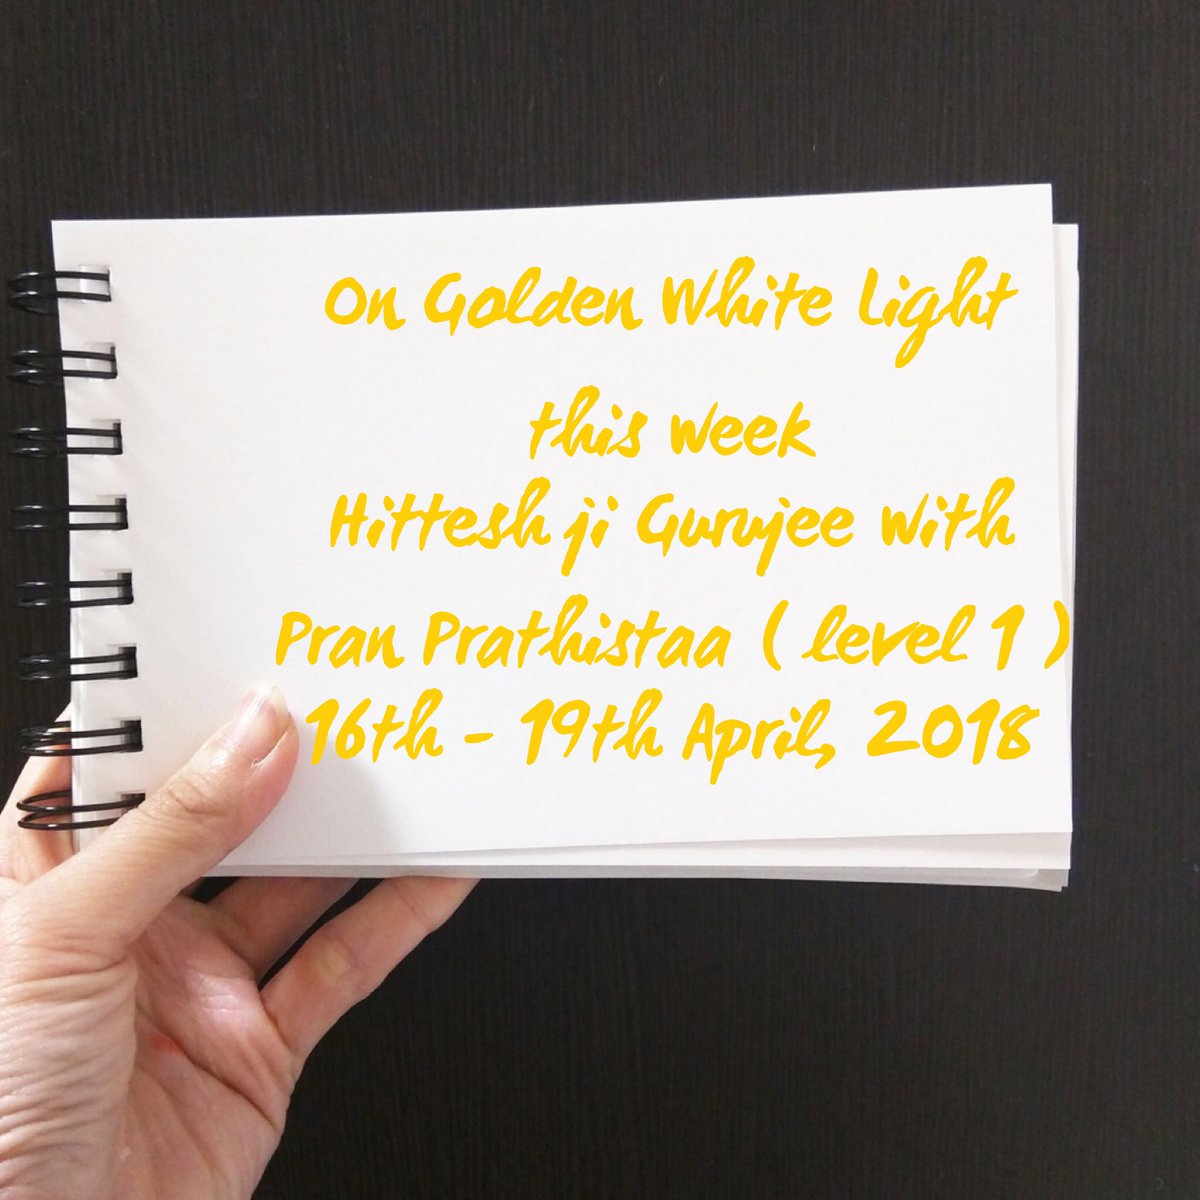 On Golden White Light
this week
Hittesh ji Gurujee with
Pran Prathistaa ( level 1 )
16th - 19th April, 2018